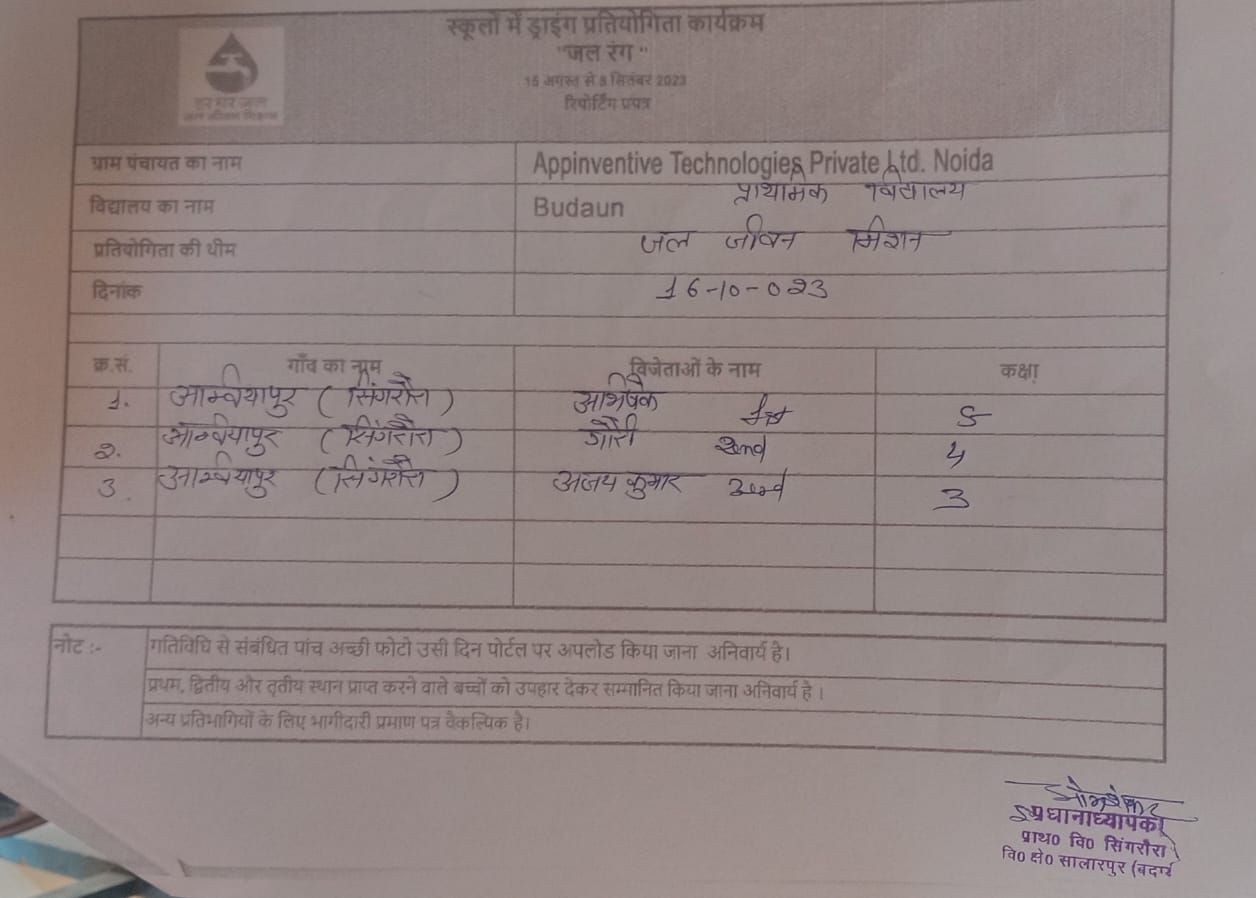 स्कूलों में ड्राइंग प्रतियोगिता कार्यक्रम
"जल रंग "
15 अगस्त से 8 सितंबर 2023
रिपोर्टिंग प्रपत्र
हर घर जल
जल जीवन मिशन
ग्राम पंचायत का नाम Appinventive Technologies Private Ltd. Noida
विद्यालय का नाम Budaun प्राथमिक विद्यालय
प्रतियोगिता की थीम जल जीवन मिशन
दिनांक 16-10-023
क्र.सं. गाँव का नाम विजेताओं के नाम कक्षा
1. आम्बियापुर (सिंगरौरा) अभिषेक 1st 5
2. आम्बियापुर (सिंगरौरा) गौरी 2nd 4
3. आम्बियापुर (सिंगरौरा) अजय कुमार 3rd 3
नोट :- गतिविधि से संबंधित पांच अच्छी फोटो उसी दिन पोर्टल पर अपलोड किया जाना अनिवार्य है।
प्रथम, द्वितीय और तृतीय स्थान प्राप्त करने वाले बच्चों को उपहार देकर सम्मानित किया जाना अनिवार्य है ।
अन्य प्रतिभागियों के लिए भागीदारी प्रमाण पत्र वैकल्पिक है।
प्रधानाध्यापक
प्राथ0 वि0 सिंगरौरा
वि0 क्षे0 सालारपुर (बदायूं